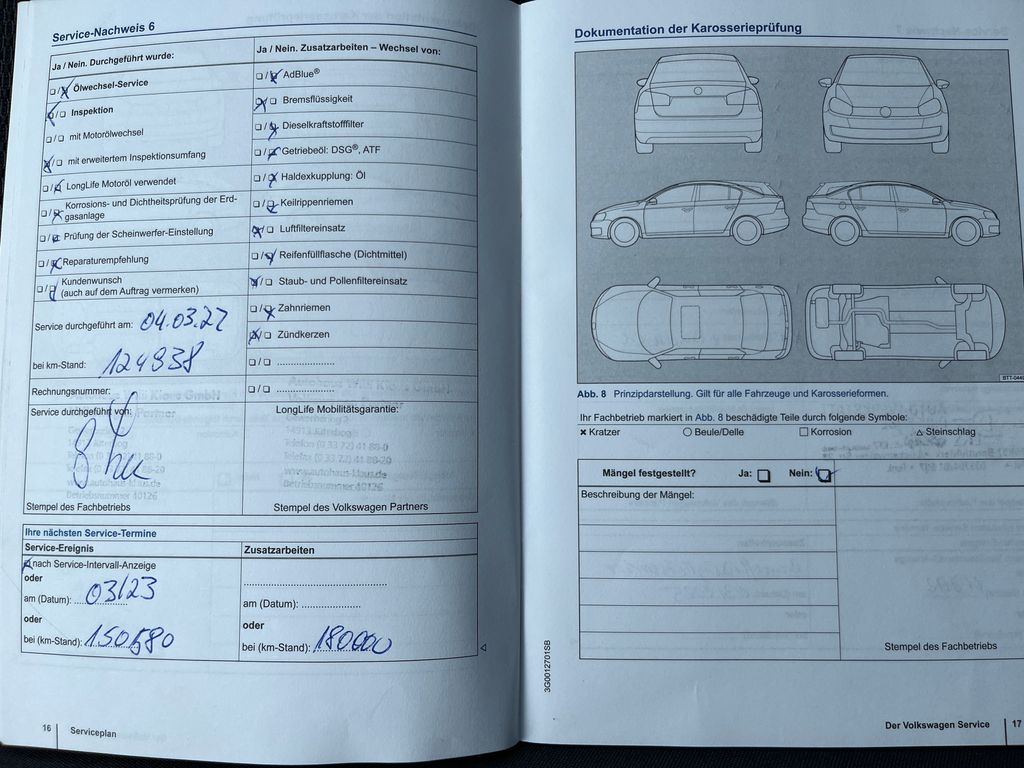 Service-Nachweis 6
Ja / Nein. Durchgeführt wurde:
Ölwechsel-Service
Inspektion
mit Motorölwechsel
mit erweitertem Inspektionsumfang
LongLife Motoröl verwendet
Korrosions- und Dichtheitsprüfung der Erd-
gasanlage
Prüfung der Scheinwerfer-Einstellung
Reparaturempfehlung
Kundenwunsch
(auch auf dem Auftrag vermerken)
Service durchgeführt am: 04.03.22
bei km-Stand: 124838
Rechnungsnummer:
Service durchgeführt von:
Stempel des Fachbetriebs
Ja / Nein. Zusatzarbeiten – Wechsel von:
AdBlue®
Bremsflüssigkeit
Dieselkraftstofffilter
Getriebeöl: DSG®, ATF
Haldexkupplung: Öl
Keilrippenriemen
Luftfiltereinsatz
Reifenfüllflasche (Dichtmittel)
Staub- und Pollenfiltereinsatz
Zahnriemen
Zündkerzen
LongLife Mobilitätsgarantie:
Stempel des Volkswagen Partners
Ihre nächsten Service-Termine
Service-Ereignis
nach Service-Intervall-Anzeige
oder
am (Datum): 03/23
oder
bei (km-Stand): 150580
Zusatzarbeiten
am (Datum):
oder
bei (km-Stand): 180000
16 Serviceplan
Dokumentation der Karosserieprüfung
Abb. 8 Prinzipdarstellung. Gilt für alle Fahrzeuge und Karosserieformen.
Ihr Fachbetrieb markiert in Abb. 8 beschädigte Teile durch folgende Symbole:
× Kratzer ○ Beule/Delle □ Korrosion △ Steinschlag
Mängel festgestellt? Ja: Nein:
Beschreibung der Mängel:
Stempel des Fachbetriebs
3G0012701SB
Der Volkswagen Service 17